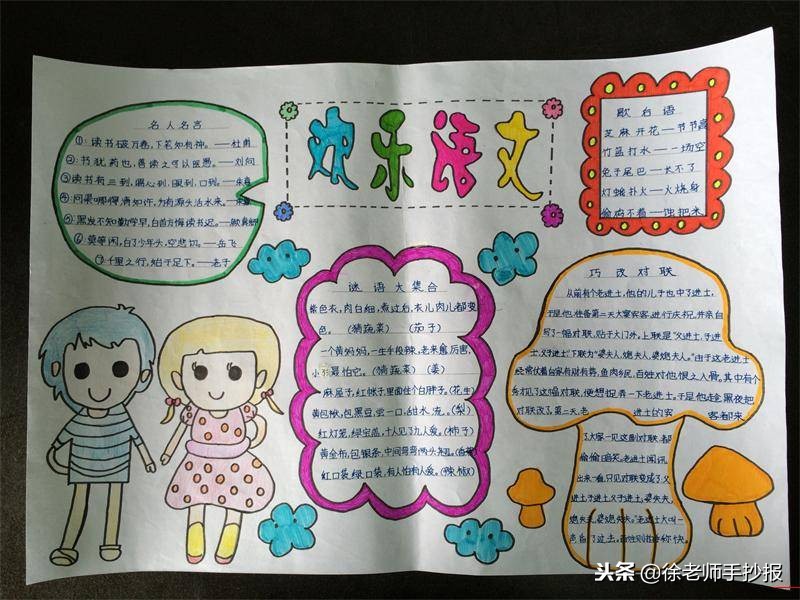 欢乐语文
名人名言
①:读书破万卷,下笔如有神。——杜甫
②:书犹药也,善读之可以医愚。——刘向
③读书有三到,谓心到,眼到,口到。——朱熹
④:问渠哪得清如许,为有源头活水来。——朱熹
⑤:黑发不知勤学早,白首方悔读书迟。——颜真卿
⑥:莫等闲,白了少年头,空悲切。——岳飞
⑦千里之行,始于足下。——老子
歇后语
芝麻开花——节节高
竹篮打水——一场空
兔子尾巴——长不了
灯蛾扑火——火烧身
偷鸡不着——蚀把米
谜语大集合
紫色衣,肉白细,煮过后,衣儿肉儿都变
色。(猜蔬菜)(茄子)
一个黄妈妈,一生手段辣,老来愈厉害,
小孩最怕它。(猜蔬菜)(姜)
麻屋子,红帐子,里面住个白胖子。(花生)
黄包袱,包黑豆,尝一口,甜水流。(梨)
红灯笼,绿宝盖,十人见了九人爱。(柿子)
黄金布,包银条,中间弯弯两头翘。(香蕉)
红口袋,绿口袋,有人怕有人爱。(辣椒)
巧改对联
从前有个老进士,他的儿子也中了进士,
于是他准备第二天大宴宾客,进行庆祝,并亲自
写了一幅对联,贴于大门外。上联是"父进士,子进
士,父子进士"下联为"婆夫人,媳夫人,婆媳夫人。"由于这老进士
经常仗着自家有财有势,鱼肉乡民,百姓对他恨之入骨。其中有个
秀才见了这幅对联,便想捉弄一下老进士。于是他趁黑夜把
对联改了。第二天,老 进士的宾 客都来
了。大家一见这副对联,都
偷偷口暗笑。老进士闻讯
出来一看,只见对联变成了"父
进土,子进土,父子进土,婆失夫,
媳失夫,婆媳失夫。"老进士大叫一
头条 @徐老师手抄报